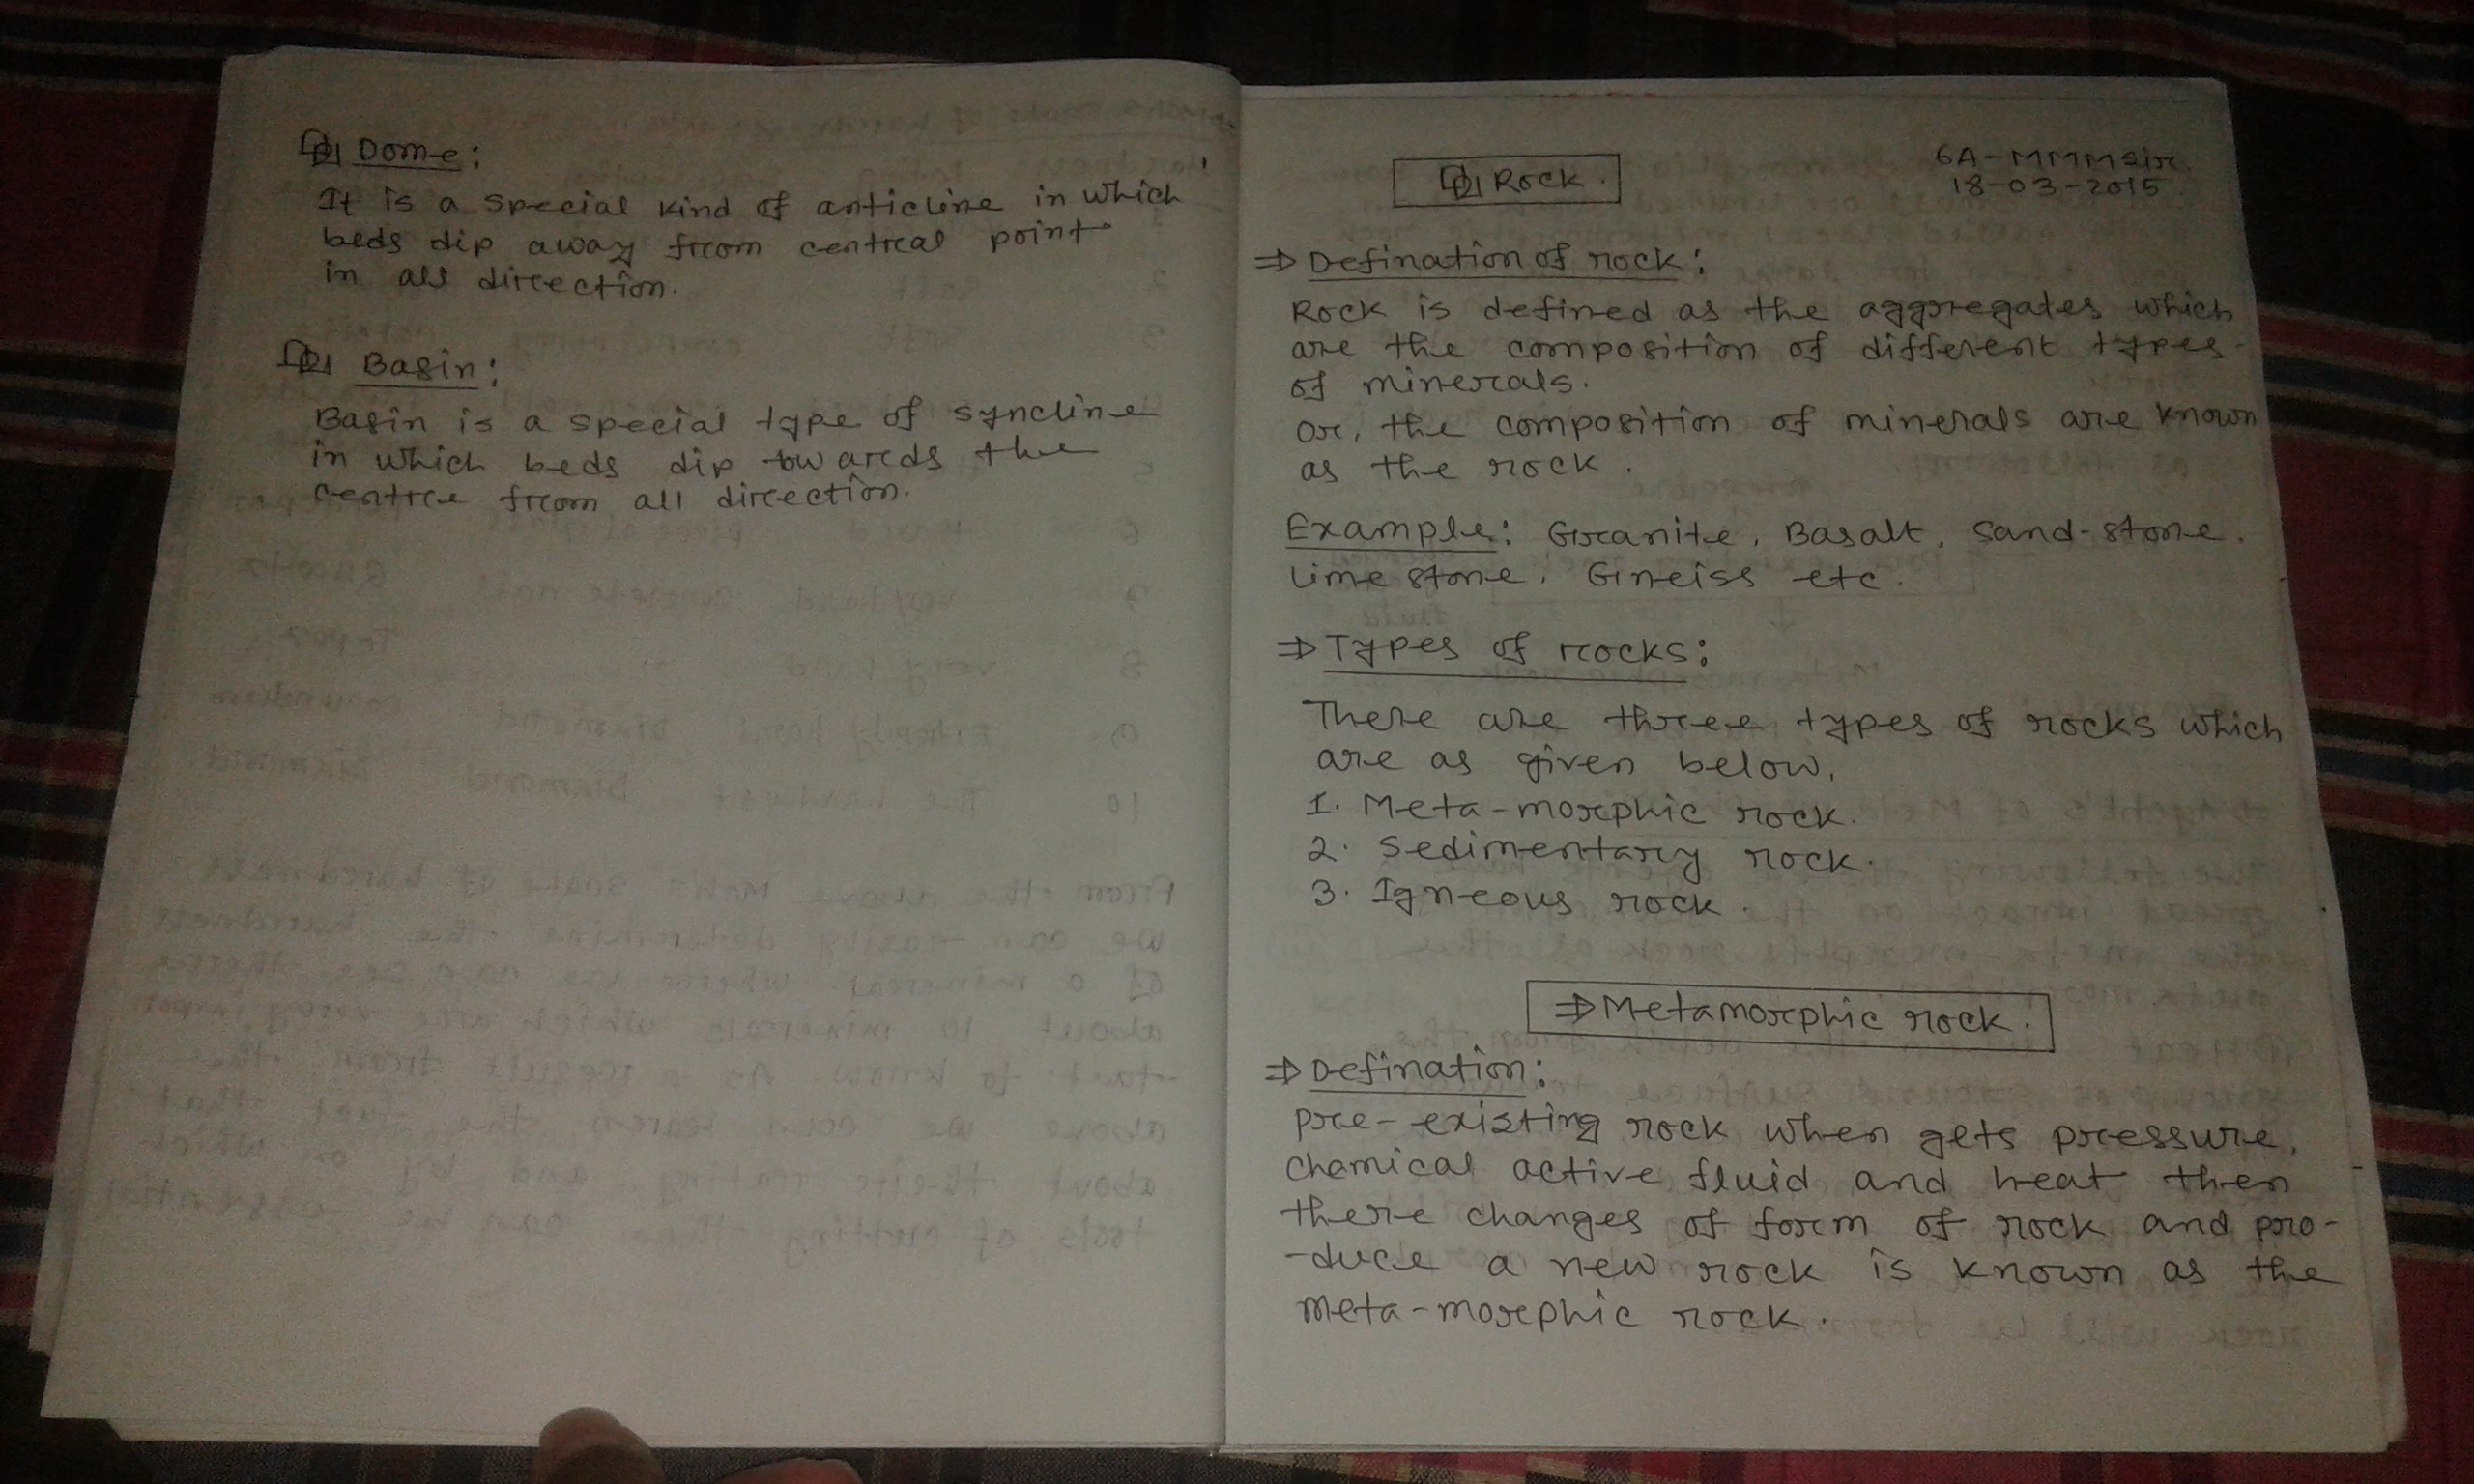 Dome:
It is a special kind of anticline in which
beds dip away from central point
in all direction.
Basin:
Basin is a special type of syncline
in which beds dip towards the
centre from all direction.
Rock.
6A-MMMSir
18-03-2015
⇒ Defination of rock:
Rock is defined as the aggregates which
are the composition of different types
of minerals.
or, the composition of minerals are known
as the rock.
Example: Granite, Basalt, Sand-stone,
Lime stone, Gineiss etc.
⇒ Types of rocks:
There are three types of rocks which
are as given below,
1. Meta-morphic rock.
2. Sedimentary rock.
3. Igneous rock.
⇒ Metamorphic rock.
⇒ Defination:
pre-existing rock when gets pressure,
chemical active fluid and heat then
there changes of form of rock and pro-
-duce a new rock is known as the
meta-morphic rock.